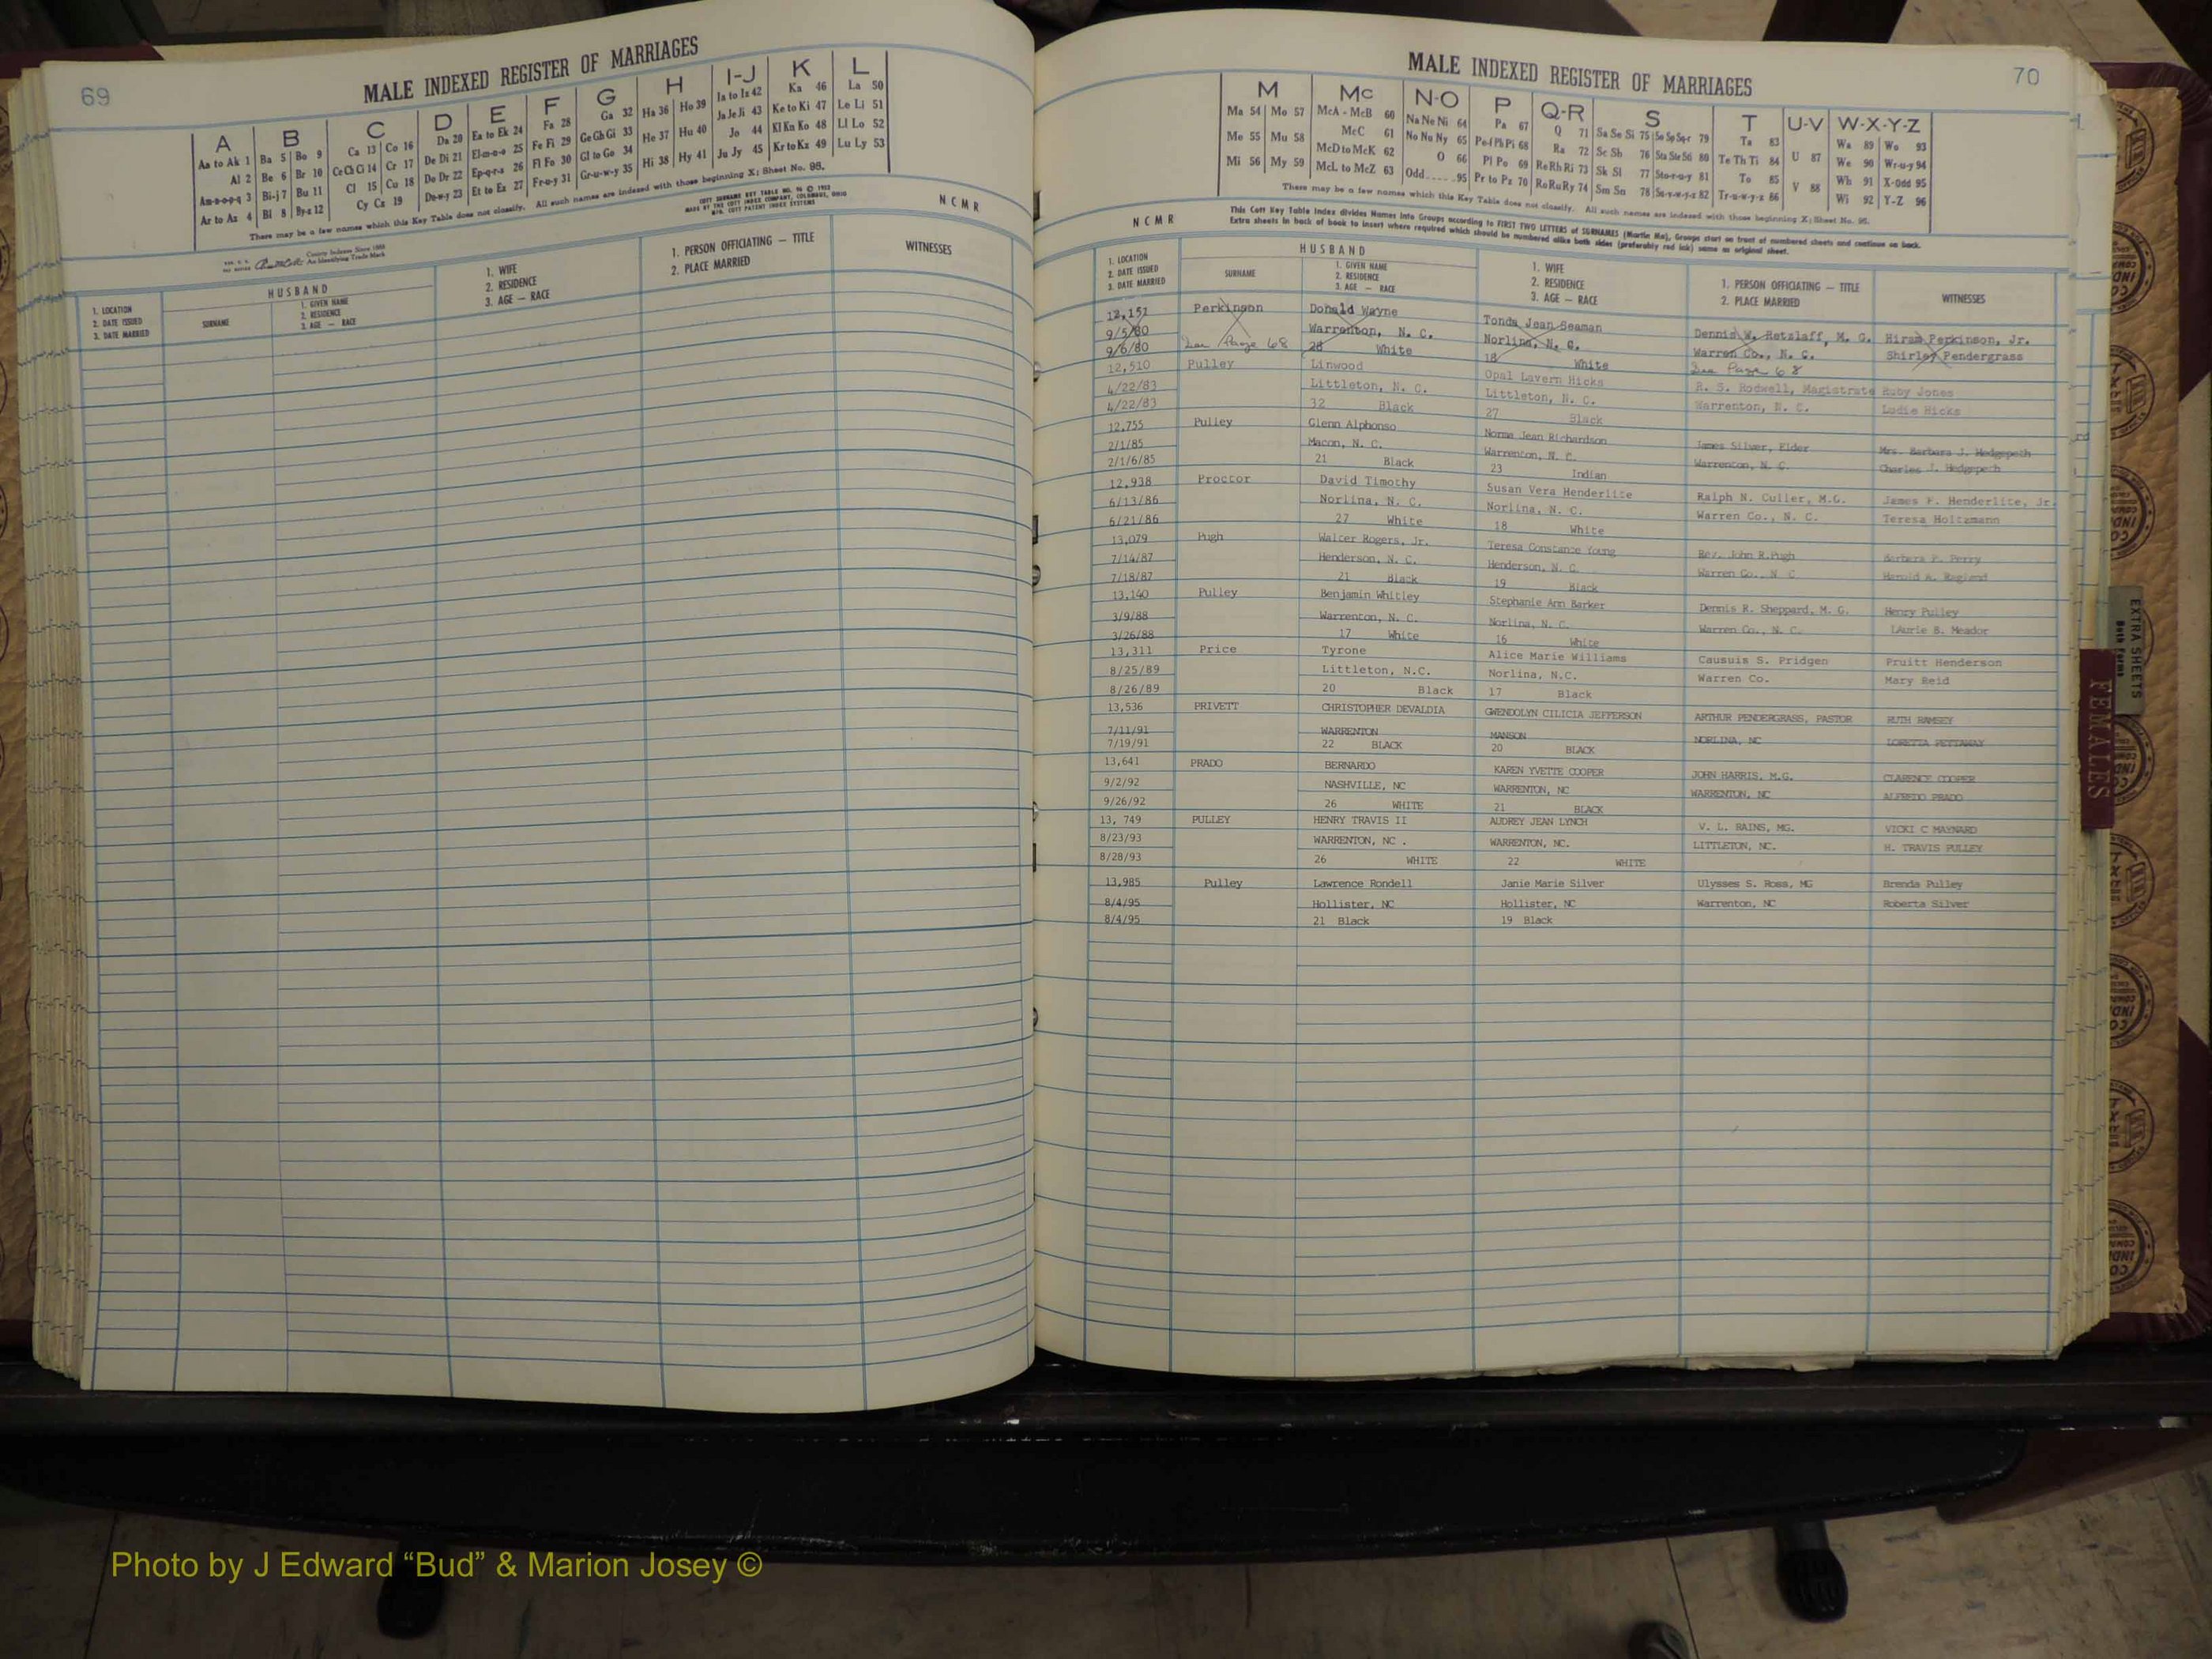 69
MALE INDEXED REGISTER OF MARRIAGES
A B C D E F G H I-J K L
Aa to Ak 1 Ba 5 Bo 9 Ca 13 Co 16 Da 20 Ea to Ek 24 Fa 28 Ga 32 Ha 36 Ho 39 Ia to Iz 42 Ka 46 La 50
Al 2 Be 6 Br 10 Ce Ch Ci 14 Cr 17 De Di 21 El-m-n-o 25 Fe Fi 29 Ge Gh Gi 33 He 37 Hu 40 Ja Je Ji 43 Ke to Ki 47 Le Li 51
Am-n-o-p-q 3 Bi-j 7 Bu 11 Cl 15 Cu 18 Do Dr 22 Ep-q-r-s 26 Fl Fo 30 Gl to Go 34 Hi 38 Hy 41 Jo 44 Kl Kn Ko 48 Ll Lo 52
Ar to Az 4 Bl 8 By-z 12 Cy Cz 19 De-w-y 23 Et to Ez 27 Fr-u-y 31 Gr-u-w-y 35 Ju Jy 45 Kr to Kz 49 Lu Ly 53
There may be a few names which this Key Table does not classify. All such names are indexed with those beginning X; Sheet No. 95.
COTT SURNAME KEY TABLE NO. 96 © 1952
MADE BY THE COTT INDEX COMPANY, COLUMBUS, OHIO
COTT PATENT INDEX SYSTEMS
NCMR
County Indexes Since 1888
An Identifying Trade Mark
1. LOCATION
2. DATE ISSUED
3. DATE MARRIED
HUSBAND
SURNAME
1. GIVEN NAME
2. RESIDENCE
3. AGE — RACE
1. WIFE
2. RESIDENCE
3. AGE — RACE
1. PERSON OFFICIATING — TITLE
2. PLACE MARRIED
WITNESSES
70
MALE INDEXED REGISTER OF MARRIAGES
M Mc N-O P Q-R S T U-V W-X-Y-Z
Ma 54 Mo 57 McA - McB 60 Na Ne Ni 64 Pa 67 Q 71 Sa Se Si 75 So Sp Sq-r 79 Ta 83 Wa 89 Wo 93
Me 55 Mu 58 McC 61 No Nu Ny 65 Pe-f Ph Pi 68 Ra 72 Sc Sh 76 Sta Ste Sti 80 Te Th Ti 84 U 87 We 90 Wr-u-y 94
Mi 56 My 59 McD to McK 62 O 66 Pl Po 69 Re Rh Ri 73 Sk Sl 77 Sto-r-u-y 81 To 85 Wh 91 X-Odd 95
McL to McZ 63 Odd 95 Pr to Pz 70 Ro Ru Ry 74 Sm Sn 78 Su-v-w-y-z 82 Tr-u-w-y-z 86 V 88 Wi 92 Y-Z 96
There may be a few names which this Key Table does not classify. All such names are indexed with those beginning X; Sheet No. 95.
NCMR
This Cott Key Table Index divides Names into Groups according to FIRST TWO LETTERS of SURNAMES (Martin Ma), Groups start on front of numbered sheets and continue on back.
Extra sheets in back of book to insert where required which should be numbered alike both sides (preferably red ink) same as original sheet.
1. LOCATION
2. DATE ISSUED
3. DATE MARRIED
HUSBAND
SURNAME
1. GIVEN NAME
2. RESIDENCE
3. AGE — RACE
1. WIFE
2. RESIDENCE
3. AGE — RACE
1. PERSON OFFICIATING — TITLE
2. PLACE MARRIED
WITNESSES
12,151 Perkinson Donald Wayne Tonda Jean Seaman Dennis W. Retzlaff, M. G. Hiram Perkinson, Jr.
9/5/80 Warrenton, N. C. Norlina, N. C. Warren Co., N. C. Shirley Pendergrass
9/6/80 See Page 68 28 White 18 White See Page 68
12,510 Pulley Linwood Opal Lavern Hicks R. S. Rodwell, Magistrate Ruby Jones
4/22/83 Littleton, N. C. Littleton, N. C. Warrenton, N. C. Ludie Hicks
4/22/83 32 Black 27 Black
12,755 Pulley Glenn Alphonso Norma Jean Richardson James Silver, Elder Mrs. Barbara J. Hedgepeth
2/1/85 Macon, N. C. Warrenton, N. C. Warrenton, N. C. Charles J. Hedgepeth
2/1/6/85 21 Black 23 Indian
12,938 Proctor David Timothy Susan Vera Henderlite Ralph N. Culler, M.G. James F. Henderlite, Jr.
6/13/86 Norlina, N. C. Norlina, N. C. Warren Co., N. C. Teresa Holtzmann
6/21/86 27 White 18 White
13,079 Pugh Walter Rogers, Jr. Teresa Constance Young Rev. John R.Pugh Barbara P. Perry
7/14/87 Henderson, N. C. Henderson, N. C. Warren Co., N C Harold A. Ragland
7/18/87 21 Black 19 Black
13,140 Pulley Benjamin Whitley Stephanie Ann Barker Dennis R. Sheppard, M. G. Henry Pulley
3/9/88 Warrenton, N. C. Norlina, N. C. Warren Co., N. C. LAurie B. Meador
3/26/88 17 White 16 White
13,311 Price Tyrone Alice Marie Williams Causuis S. Pridgen Pruitt Henderson
8/25/89 Littleton, N.C. Norlina, N.C. Warren Co. Mary Reid
8/26/89 20 Black 17 Black
13,536 PRIVETT CHRISTOPHER DEVALDIA GWENDOLYN CILICIA JEFFERSON ARTHUR PENDERGRASS, PASTOR RUTH RAMSEY
7/11/91 WARRENTON MANSON NORLINA, NC LORETTA PETTAWAY
7/19/91 22 BLACK 20 BLACK
13,641 PRADO BERNARDO KAREN YVETTE COOPER JOHN HARRIS, M.G. CLARENCE COOPER
9/2/92 NASHVILLE, NC WARRENTON, NC WARRENTON, NC ALFREDO PRADO
9/26/92 26 WHITE 21 BLACK
13, 749 PULLEY HENRY TRAVIS II AUDREY JEAN LYNCH V. L. RAINS, MG. VICKI C MAYNARD
8/23/93 WARRENTON, NC . WARRENTON, NC. LITTLETON, NC. H. TRAVIS PULLEY
8/28/93 26 WHITE 22 WHITE
13,985 Pulley Lawrence Rondell Janie Marie Silver Ulysses S. Ross, MG Brenda Pulley
8/4/95 Hollister, NC Hollister, NC Warrenton, NC Roberta Silver
8/4/95 21 Black 19 Black
EXTRA SHEETS
FEMALES
Photo by J Edward “Bud” & Marion Josey ©